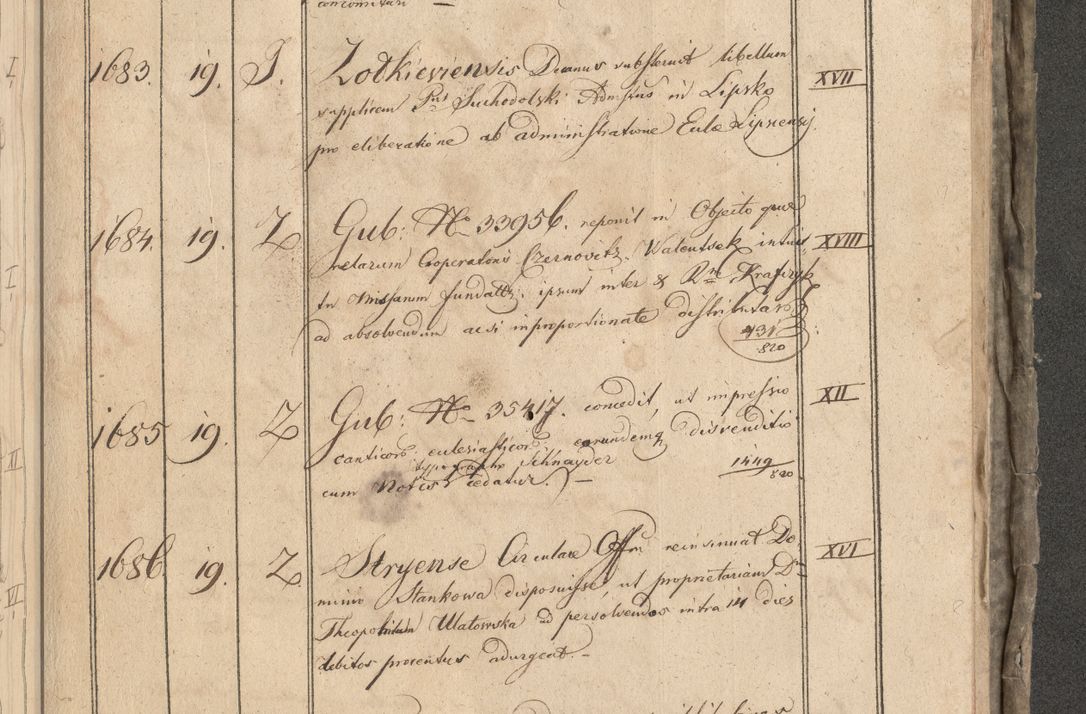 1683. 19. J. Zołkieviensis Decanus substernit libellum XVII
supplicem Pris Suchodolski Admstris in Lipsko
pro eliberatione ab administratione Eulæ Lipscensis
1684. 19. Z Gub: No 33956. reponit in Objecto quæ XVIII
relarum Cooperatoris Czernovitz. Walentsek intui
tu Missarum fundatt: ipsum inter &
ad absolvendum acsi inproportionate distributar
431
820
1685 19. Z Gub: No 35417. concedit, ut impressio XII
canticor: eclesiasticor: earundemq disvenditio
typographo Schnayder 1449
cum Notis cedatur. 820
1686. 19. Z Stryense Circulare Offm reinsinuat Do XVI
minio Stankowa disposuisse, ut proprietariam Dm
Ulatowska ad persolvendos intra 14 dies
debitos proventus adurgeat.